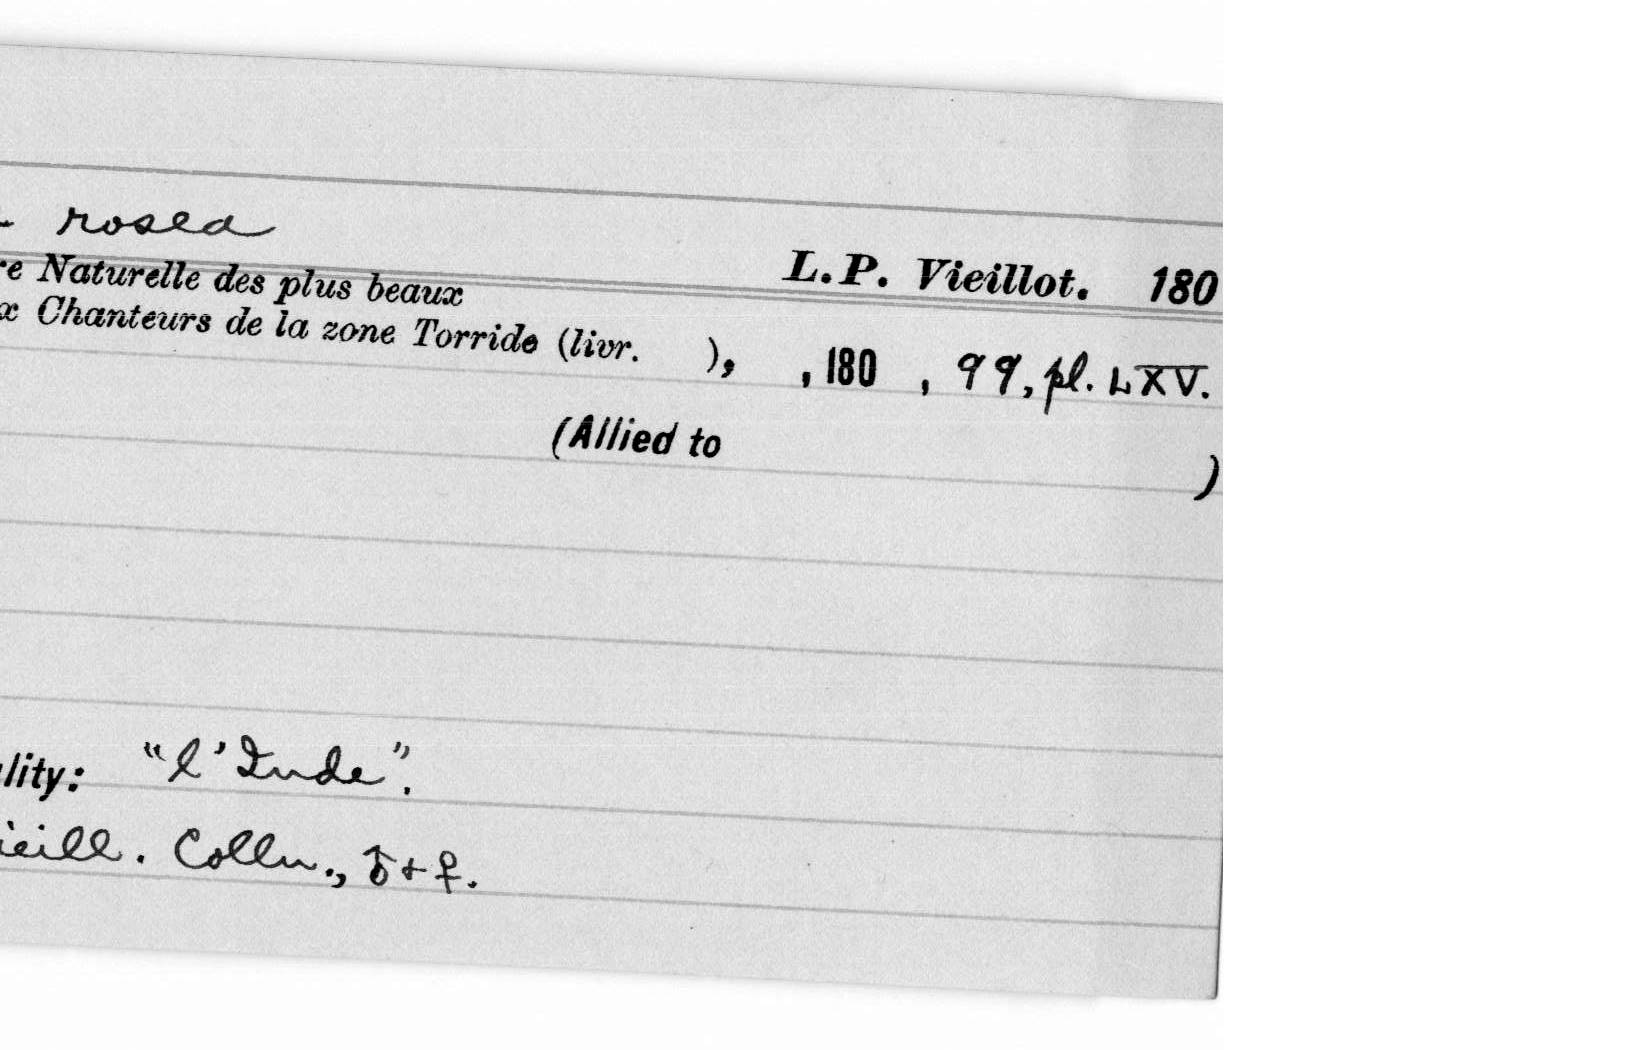 rosea
L.P. Vieillot. 180
re Naturelle des plus beaux
x Chanteurs de la zone Torride (livr. ), , 180 , 99, pl. LXV.
(Allied to )
lity: "l'Inde".
ieill. Colln., ♂ + ♀.